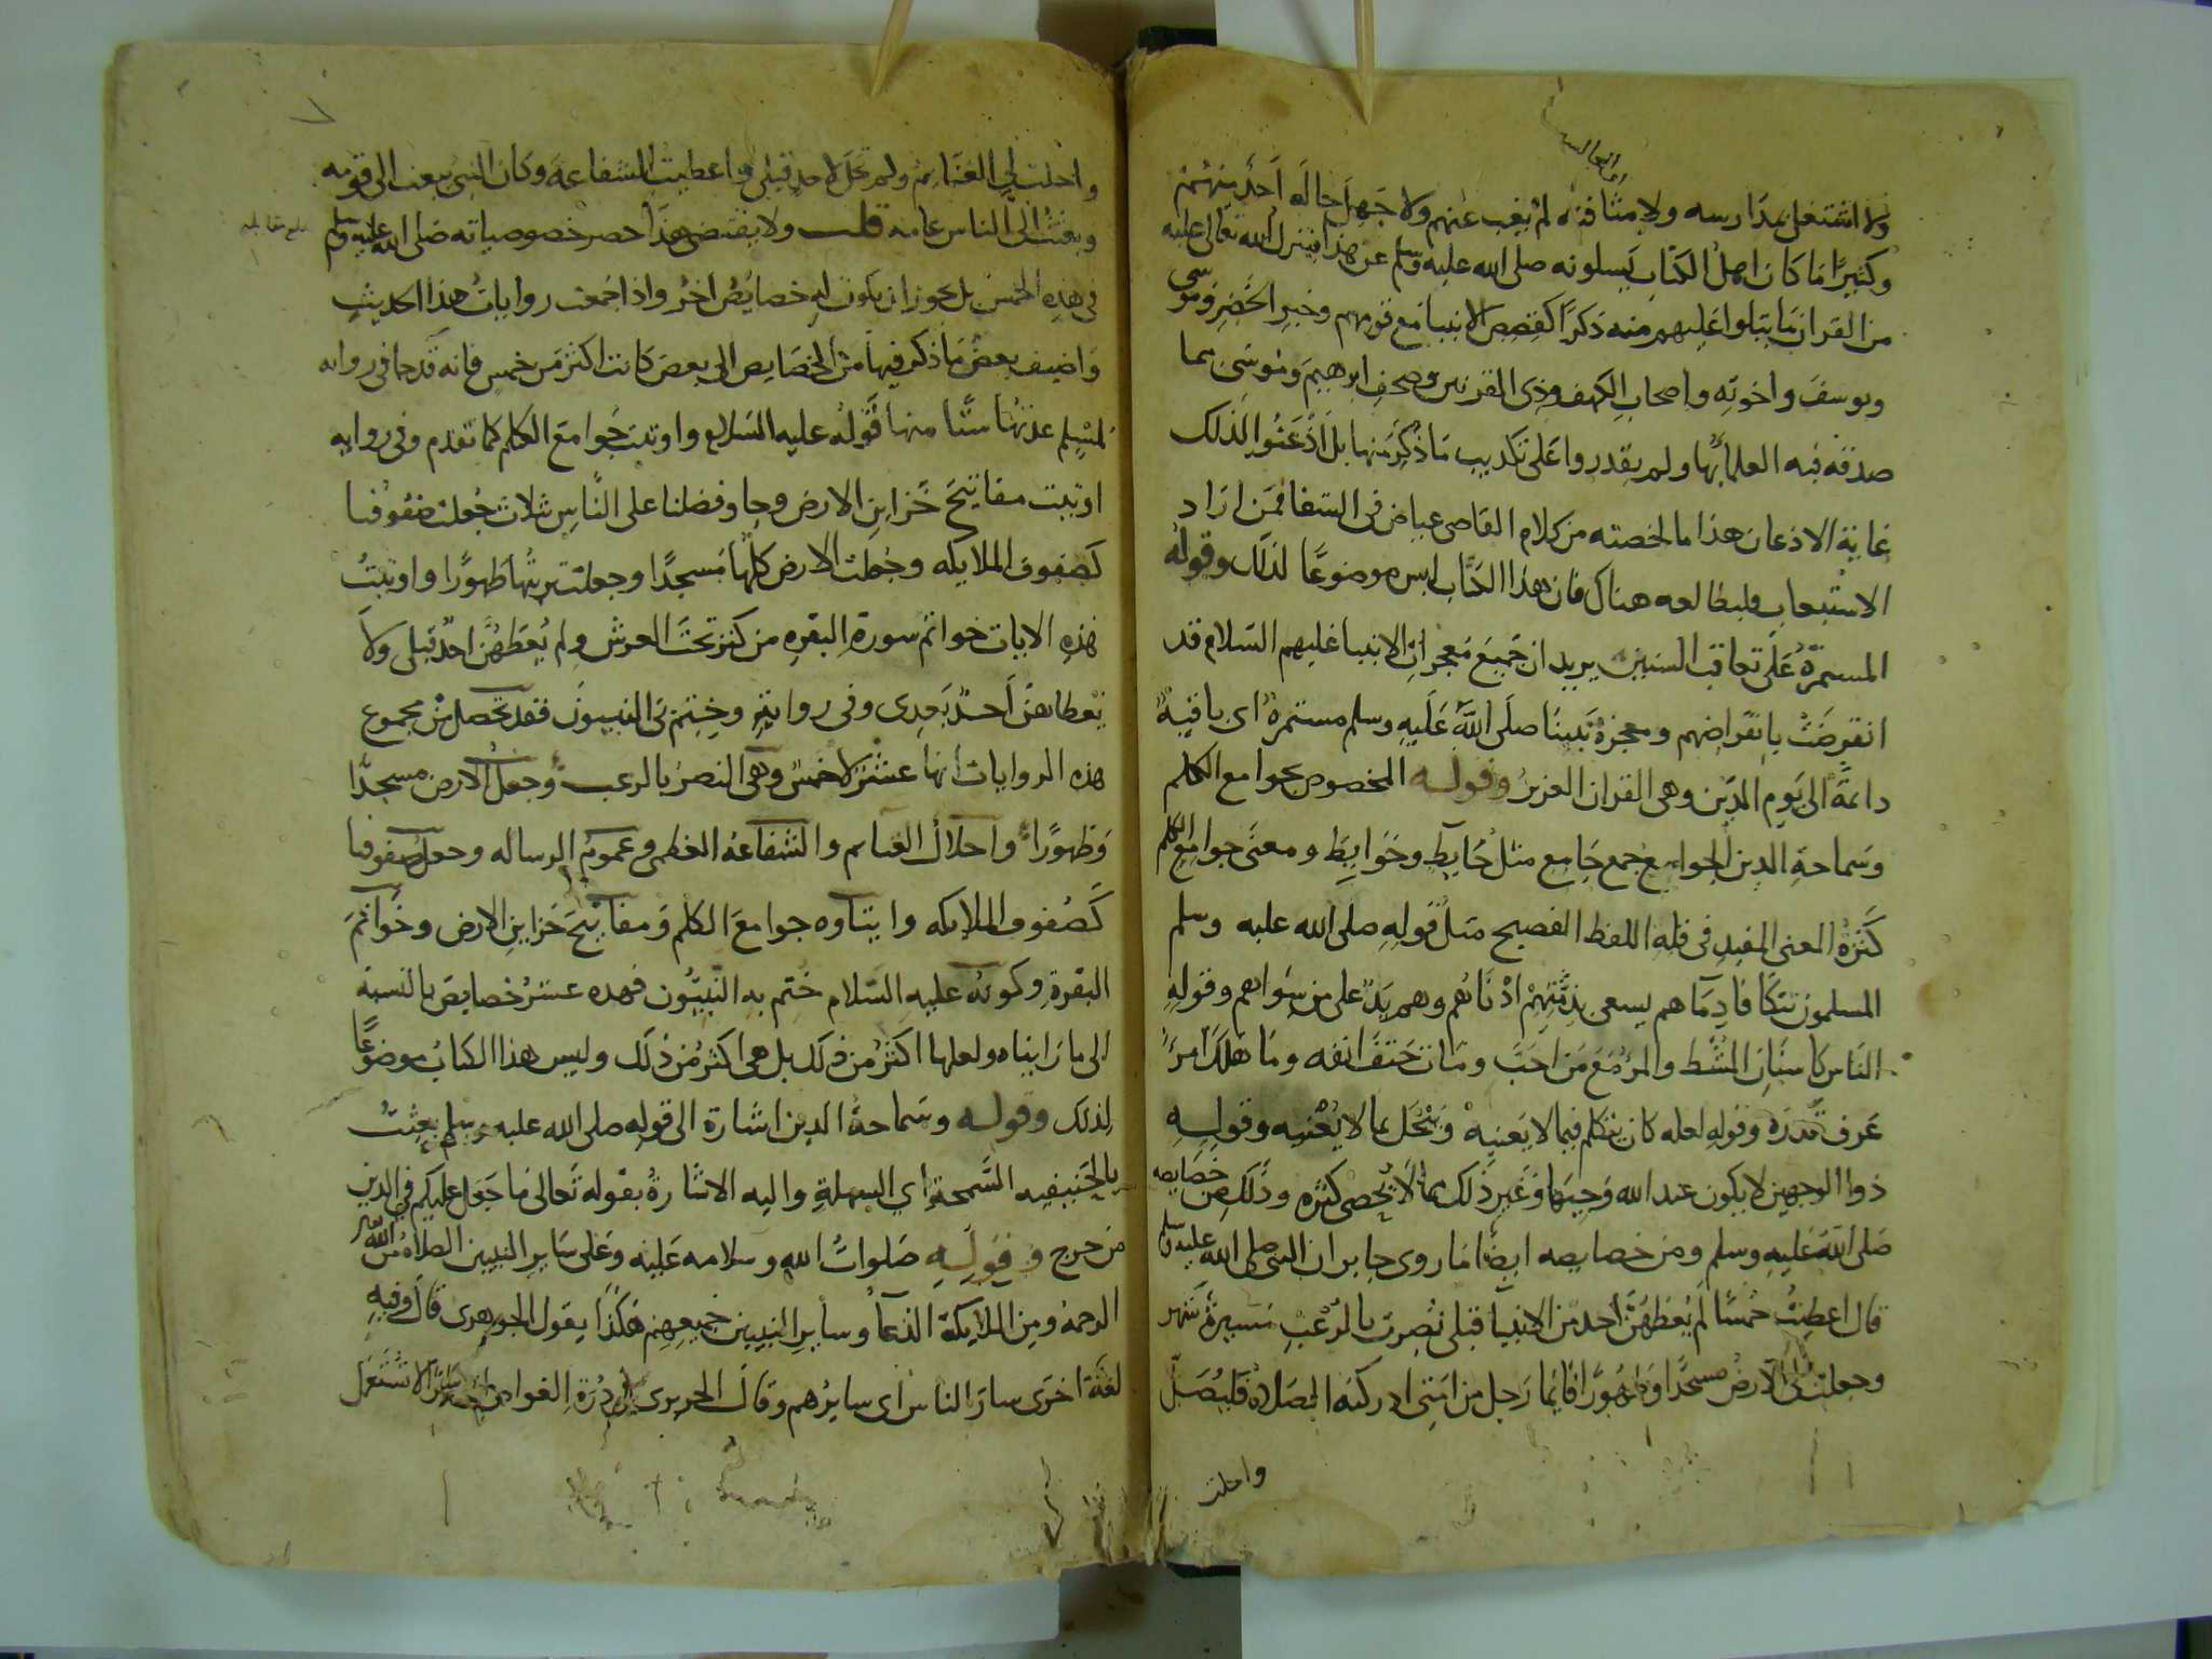 ولا اشتغل بمدارسه ولا مثافنه لم يغب عنهم ولا جهل حاله احد منهم
وكثيرًا ما كان اهل الكتاب يسلونه صلى الله عليه وسلم عن هذا فينزل الله تعالى عليه
من القران ما يتلوا عليهم منه ذكرًا كقصص الانبيا مع قومهم وخبر الخضر وموسى
ويوسف واخوته واصحاب الكهف وذى القرنين وصحف ابرهيم وموسى مما
صدقه فيه العلمآ بها ولم يقدروا على تكذيب ما ذكر منها بل اذعنوا لذلك
غاية الاذعان هذا ما لخصته من كلام القاضى عياض فى الشفا فمن اراد
الاستيعاب فليطالعه هناك فان هذا الكتاب ليس موضوعًا لذلك وقوله
المستمرة على تعاقب السنين يريد ان جميع معجزات الانبيا عليهم السلام قد
انقرضت بانقراضهم ومعجزة نبينا صلى الله عليه وسلم مستمرة اى باقية
دائمة الى يوم الدين وهى القران العزيز وقوله المخصوص بجوامع الكلم
وسماحة الدين الجوامع جمع جامع مثل حايط وحوايط ومعنى جوامع الكلم
كثرة المعنى المفيد فى قلة اللفظ الفصيح مثل قوله صلى الله عليه وسلم
المسلمون تتكافا دمآهم يسعى بذمتهم ادناهم وهم يد على من سواهم وقوله
الناس كاسنان المشط والمرء مع من احب ومات حتف انفه وما هلك امرء
عرف قدره وقوله لعله كان يتكلم فيما لا يعنيه ويبخل بما لا يغنيه وقوله
ذوا الوجهين لا يكون عند الله وجيها وغير ذلك مما لا يحصى كثره وذلك من خصايصه
صلى الله عليه وسلم ومن خصايصه ايضًا ما روى جابر ان النبى صلى الله عليه وسلم
قال اعطيت خمسًا لم يعطهن احد من الانبيآ قبلى نصرت بالرعب مسيرة شهر
وجعلت لى الارض مسجدًا وطهورًا فايما رجل من امتى ادركته الصلاة فليصل
واحلت
واحلت لى الغنايم ولم تحل لاحد قبلى واعطيت الشفاعة وكان النبى يبعث الى قومه
وبعثت الى الناس عامه قلت ولا يقتضى هذا حصر خصوصياته صلى الله عليه وسلم
فى هذه الخمس بل يجوز ان يكون له خصايص اخر واذا جمعت روايات هذا الحديث
واضيف بعض ما ذكر فيها من الخصايص الى بعض كانت اكثر من خمس فانه قد جا فى روايه
لمسلم عدتها ستا منها قوله عليه السلام واوتيت جوامع الكلم كما تقدم وفى روايه
اوتيت مفاتيح خزاين الارض وجا وفضلنا على الناس بثلاث جعلت صفوفنا
كصفوف الملايكه وجعلت الارض كلها مسجدًا وجعلت تربتها طهورًا واوتيت
هذه الايات خواتم سورة البقره من كنز تحت العرش ولم يعطهن احد قبلى ولا
يعطاهن احد بعدى وفى رواية وختم بى النبيون فقد تحصل من مجموع
هذه الروايات انها عشر لا خمس وهى النصر بالرعب وجعل الارض مسجدًا
وطهورًا واحلال الغنايم والشفاعة العظمى وعموم الرساله وجعل صفوفنا
كصفوف الملايكه وايتاوه جوامع الكلم ومفاتيح خزاين الارض وخواتم
البقرة وكونه عليه السلام ختم به النبيون فهده عشر خصايص بالنسبة
الى ما راينا ولعلها اكثر من ذلك بل هى اكثر من ذلك وليس هذا الكتاب موضوعًا
لذلك وقوله وسماحة الدين اشارة الى قوله صلى الله عليه وسلم بعثت
بالحنيفيه السمحة اي السهلة واليه الاشارة بقوله تعالى ما جعل عليكم فى الدين
من حرج وقوله صلوات الله وسلامه عليه وعلى ساير النبيين الصلاة من الله
الرحمة ومن الملايكة الدعآ وساير النبيين جميعهم هكذا يقول الجوهرى قال وفيه
لغة اخرى سار الناس اى سايرهم وقال الحريرى فى درة الغواص ساير لا تستعمل